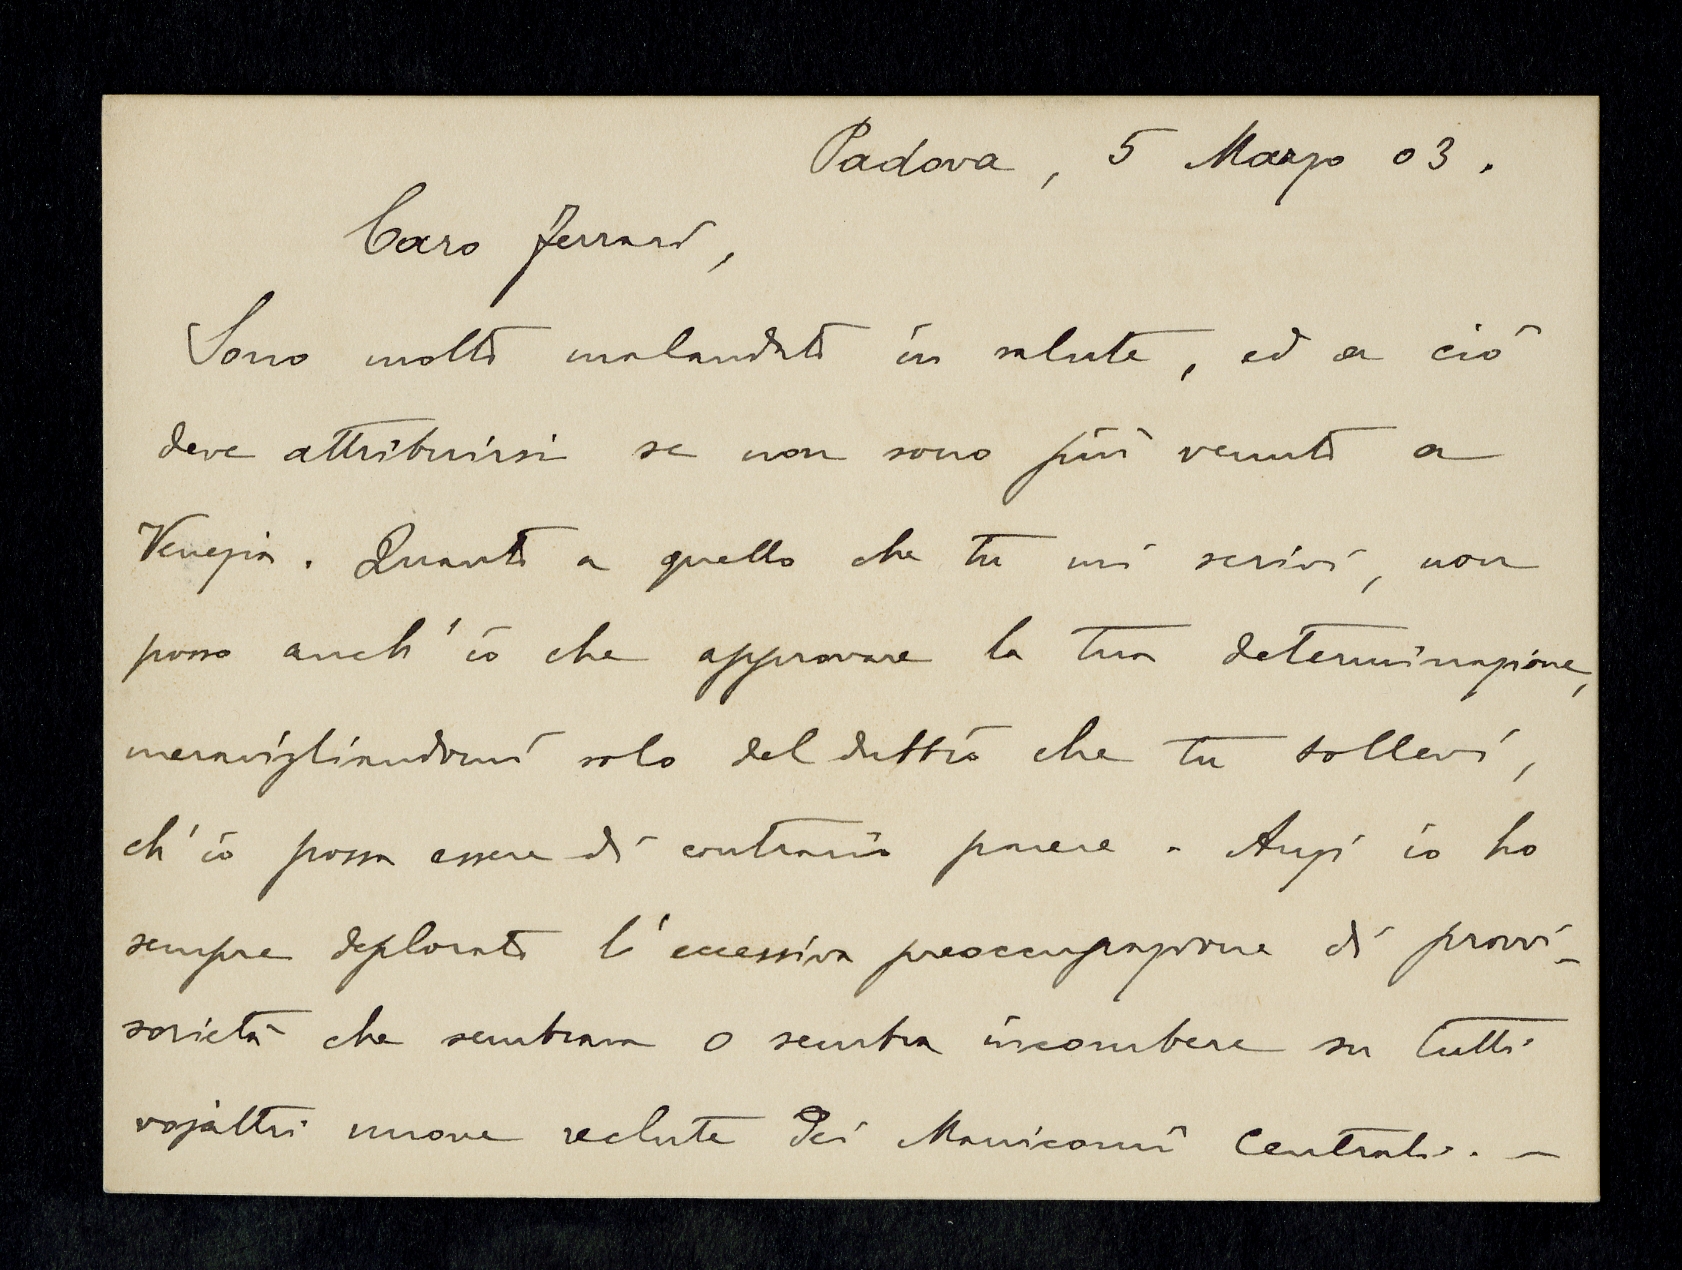 Padova, 5 Marzo 03.
Caro Ferrari,
Sono molto malandato in salute, ed a ciò
deve attribuirsi se non sono più venuto a
Venezia. Quanto a quello che tu mi scrivi, non
posso anch'io che approvare la tua determinazione,
meravigliandomi solo del dubbio che tu sollevi,
ch'io possa essere di contrario parere. Anzi io ho
sempre deplorato l'eccessiva preoccupazione di provvi-
sorietà che sembrava o sembra incombere su tutti
vojaltri nuove reclute dei Manicomi Centrali. —